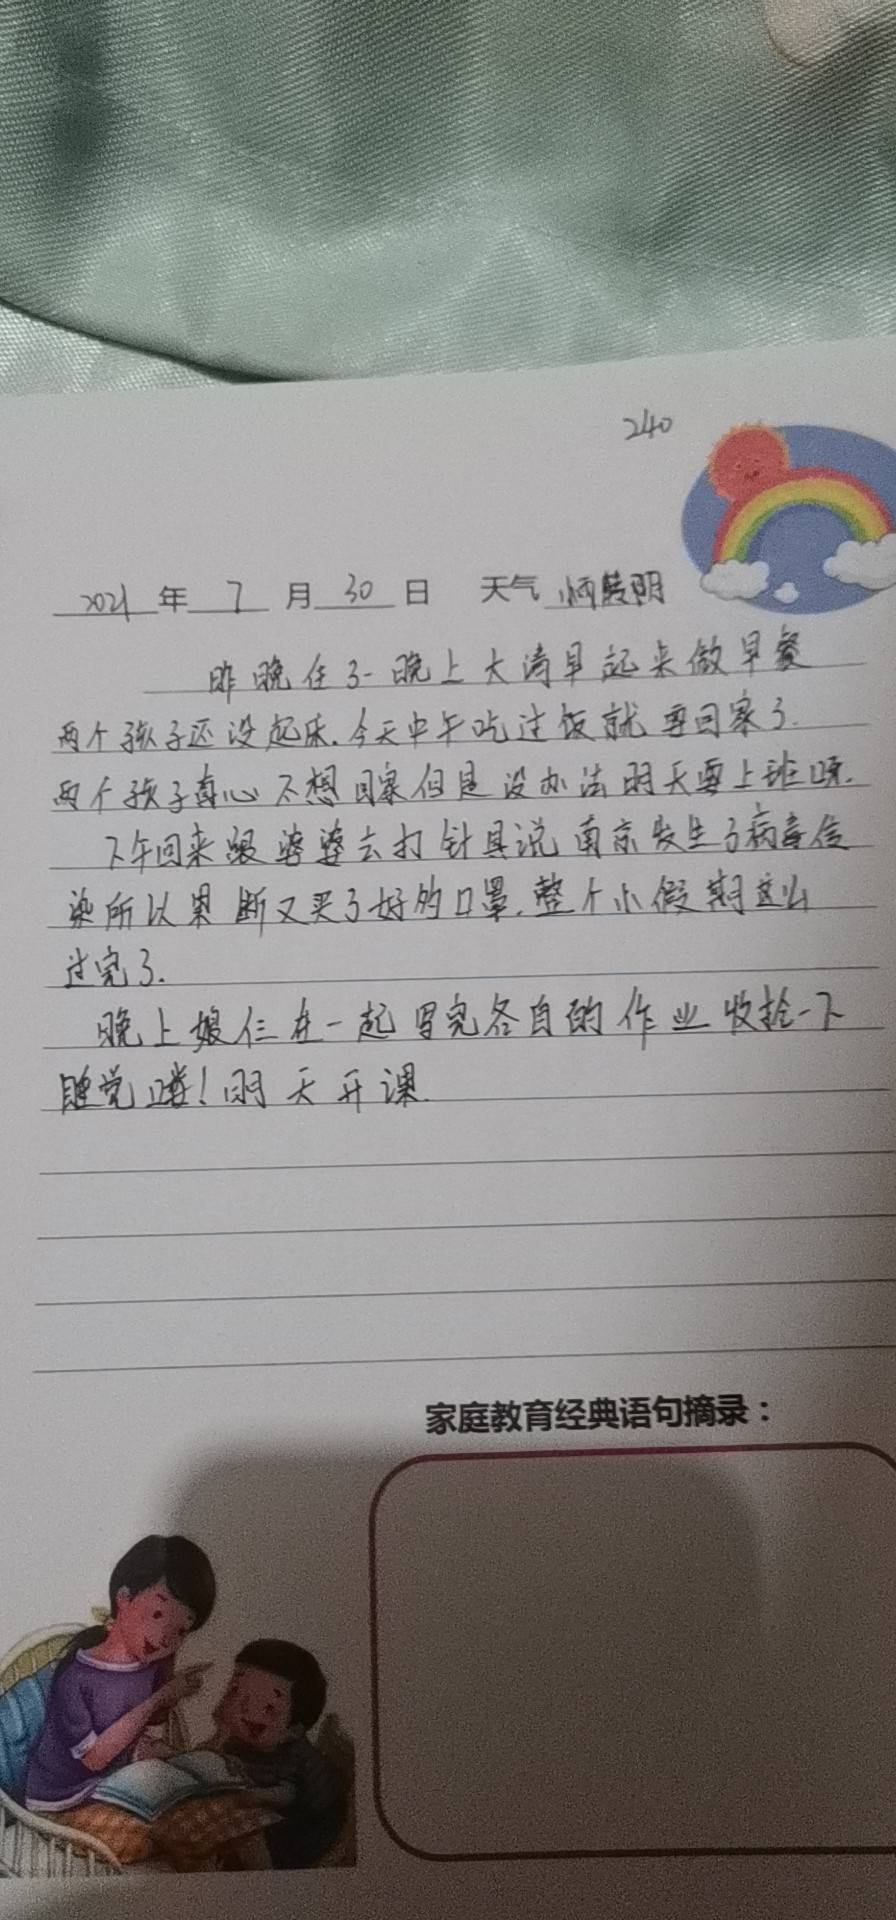 240
2021年7月30日 天气 雨转阴
昨晚住了一晚上大清早起来做早餐
两个孩子还没起床.今天中午吃过饭就要回家了.
两个孩子真心不想回家但是没办法明天要上班呀.
下午回来跟婆婆去打针具说南京发生了病毒传
染所以果断又买了好的口罩.整个小假期这么
过完了.
晚上娘仨在一起写完各自的作业收拾一下
睡觉喽!明天开课.
家庭教育经典语句摘录：